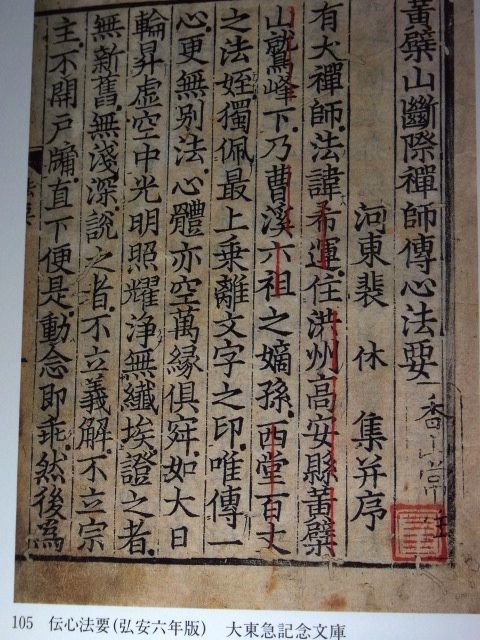 黄檗山斷際禪師傳心法要
河東裴休集并序
有大禪師法諱希運住洪州高安縣黄檗
山鷲峰下乃曹溪六祖之嫡孫西堂百丈
之法姪獨佩最上乗離文字之印唯傳一
心更無別法心體亦空萬縁俱寂如大日
輪昇虚空中光明照耀浄無纎埃證之者
無新舊無淺深說之者不立義解不立宗
主不開戶牖直下便是動念即乖然後為
105 伝心法要(弘安六年版) 大東急記念文庫